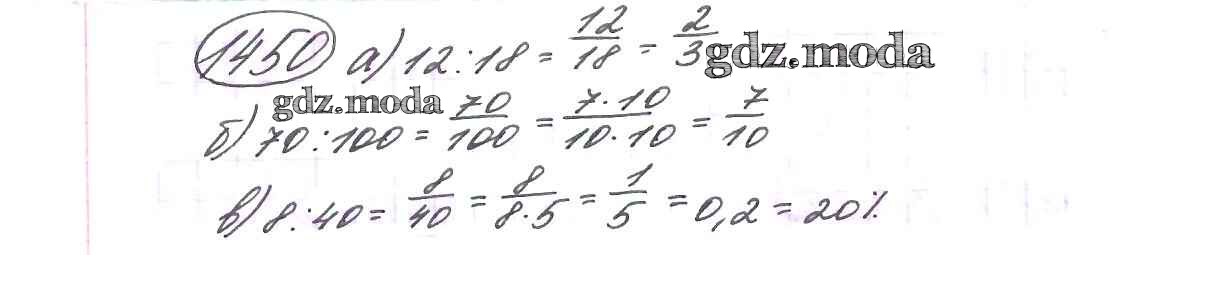 1450 а) 12:18 = 12/18 = 2/3 gdz.moda
gdz.moda
б) 70:100 = 70/100 = 7·10/10·10 = 7/10
в) 8:40 = 8/40 = 8/8·5 = 1/5 = 0,2 = 20%